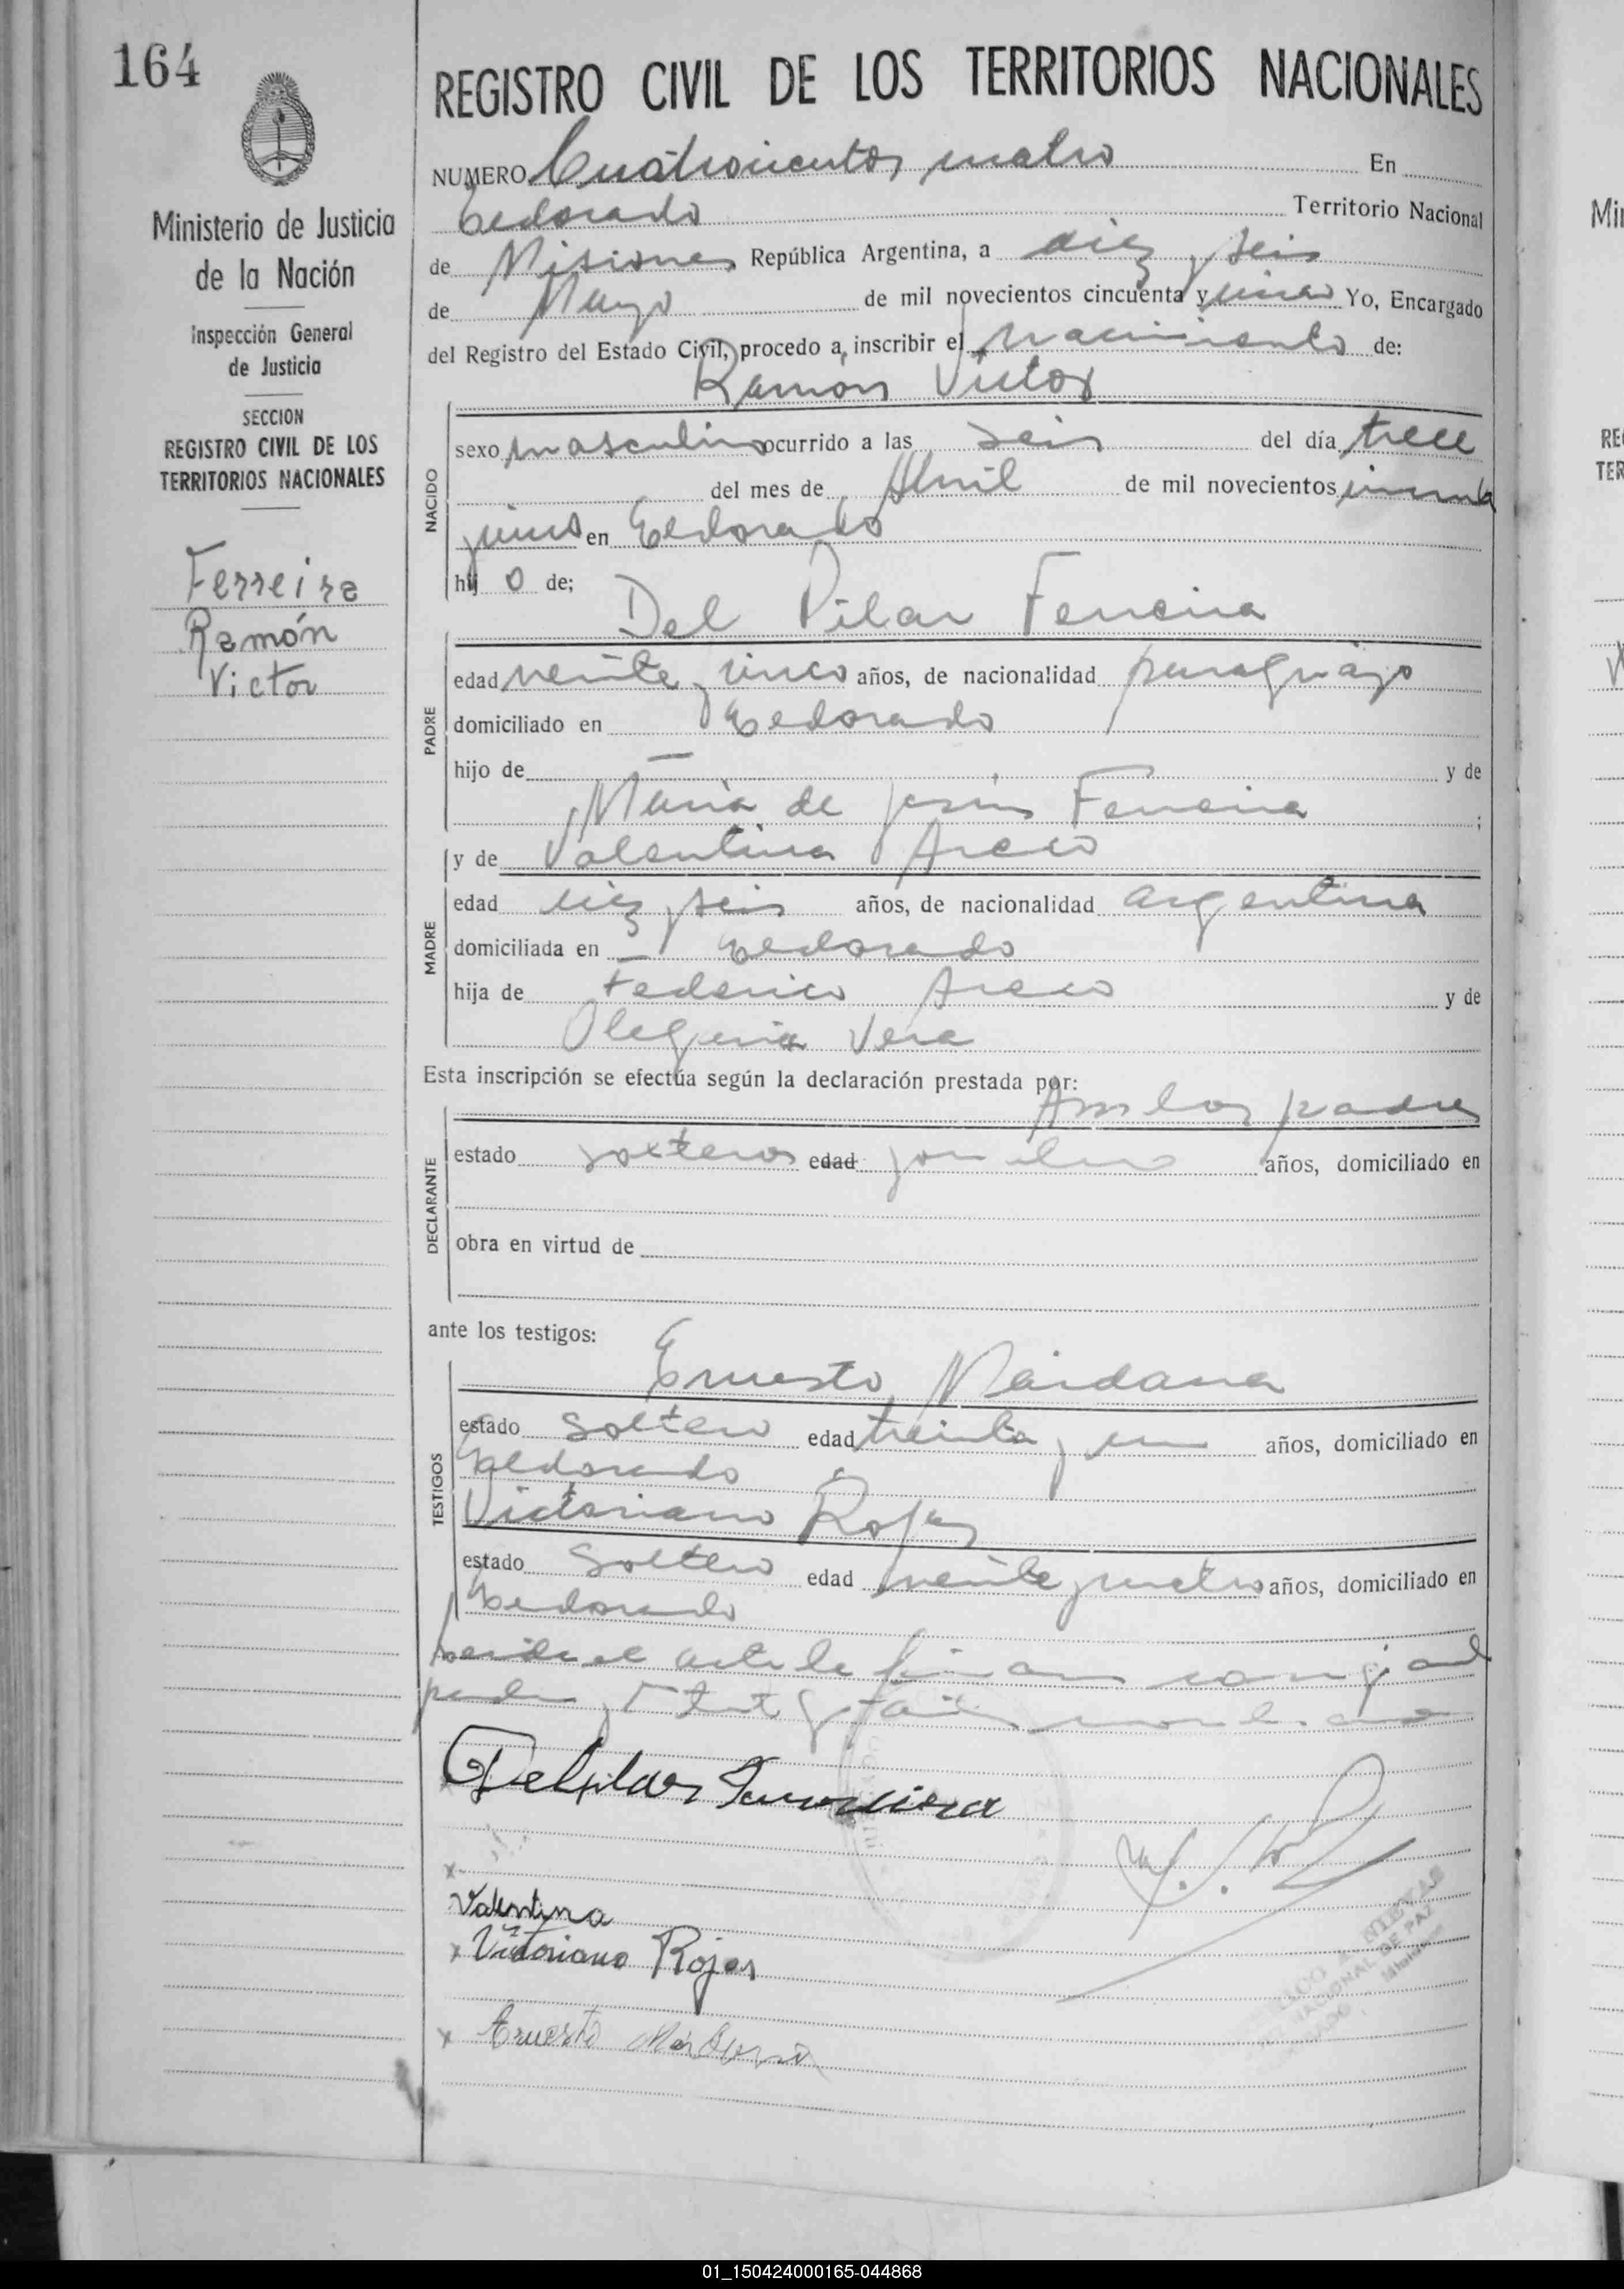 164
REGISTRO CIVIL DE LOS TERRITORIOS NACIONALES
Ministerio de Justicia
de la Nación
Inspección General
de Justicia
SECCION
REGISTRO CIVIL DE LOS
TERRITORIOS NACIONALES
Ferreira
Ramón
Victor
NUMERO Cuatrocientos cuatro En
Eldorado Territorio Nacional
de Misiones República Argentina, a diez y seis
de Mayo de mil novecientos cincuenta y uno Yo, Encargado
del Registro del Estado Civil, procedo a inscribir el nacimiento de:
Ramón Victor
NACIDO
sexo masculino ocurrido a las seis del día trece
del mes de Abril de mil novecientos cincuenta
y uno en Eldorado
hij o de;
Del Pilar Ferreira
PADRE
edad veinte y cinco años, de nacionalidad paraguayo
domiciliado en Eldorado
hijo de y de
Maria de Jesús Ferreira ;
y de Valentina Areco
MADRE
edad diez y seis años, de nacionalidad argentina
domiciliada en Eldorado
hija de Federico Areco y de
Olegaria Vera
Esta inscripción se efectúa según la declaración prestada por:
Ambos padres
DECLARANTE
estado solteros edad años, domiciliado en
obra en virtud de
ante los testigos:
Ernesto Maidana
TESTIGOS
estado soltero edad treinta y un años, domiciliado en
Eldorado
Victoriano Rojas
estado soltero edad veinte y cuatro años, domiciliado en
Eldorado
el acta la firman
Delpilar
x
Valentina
x Victoriano Rojas
x Ernesto
DE PAZ
NACIONAL
01_150424000165-044868